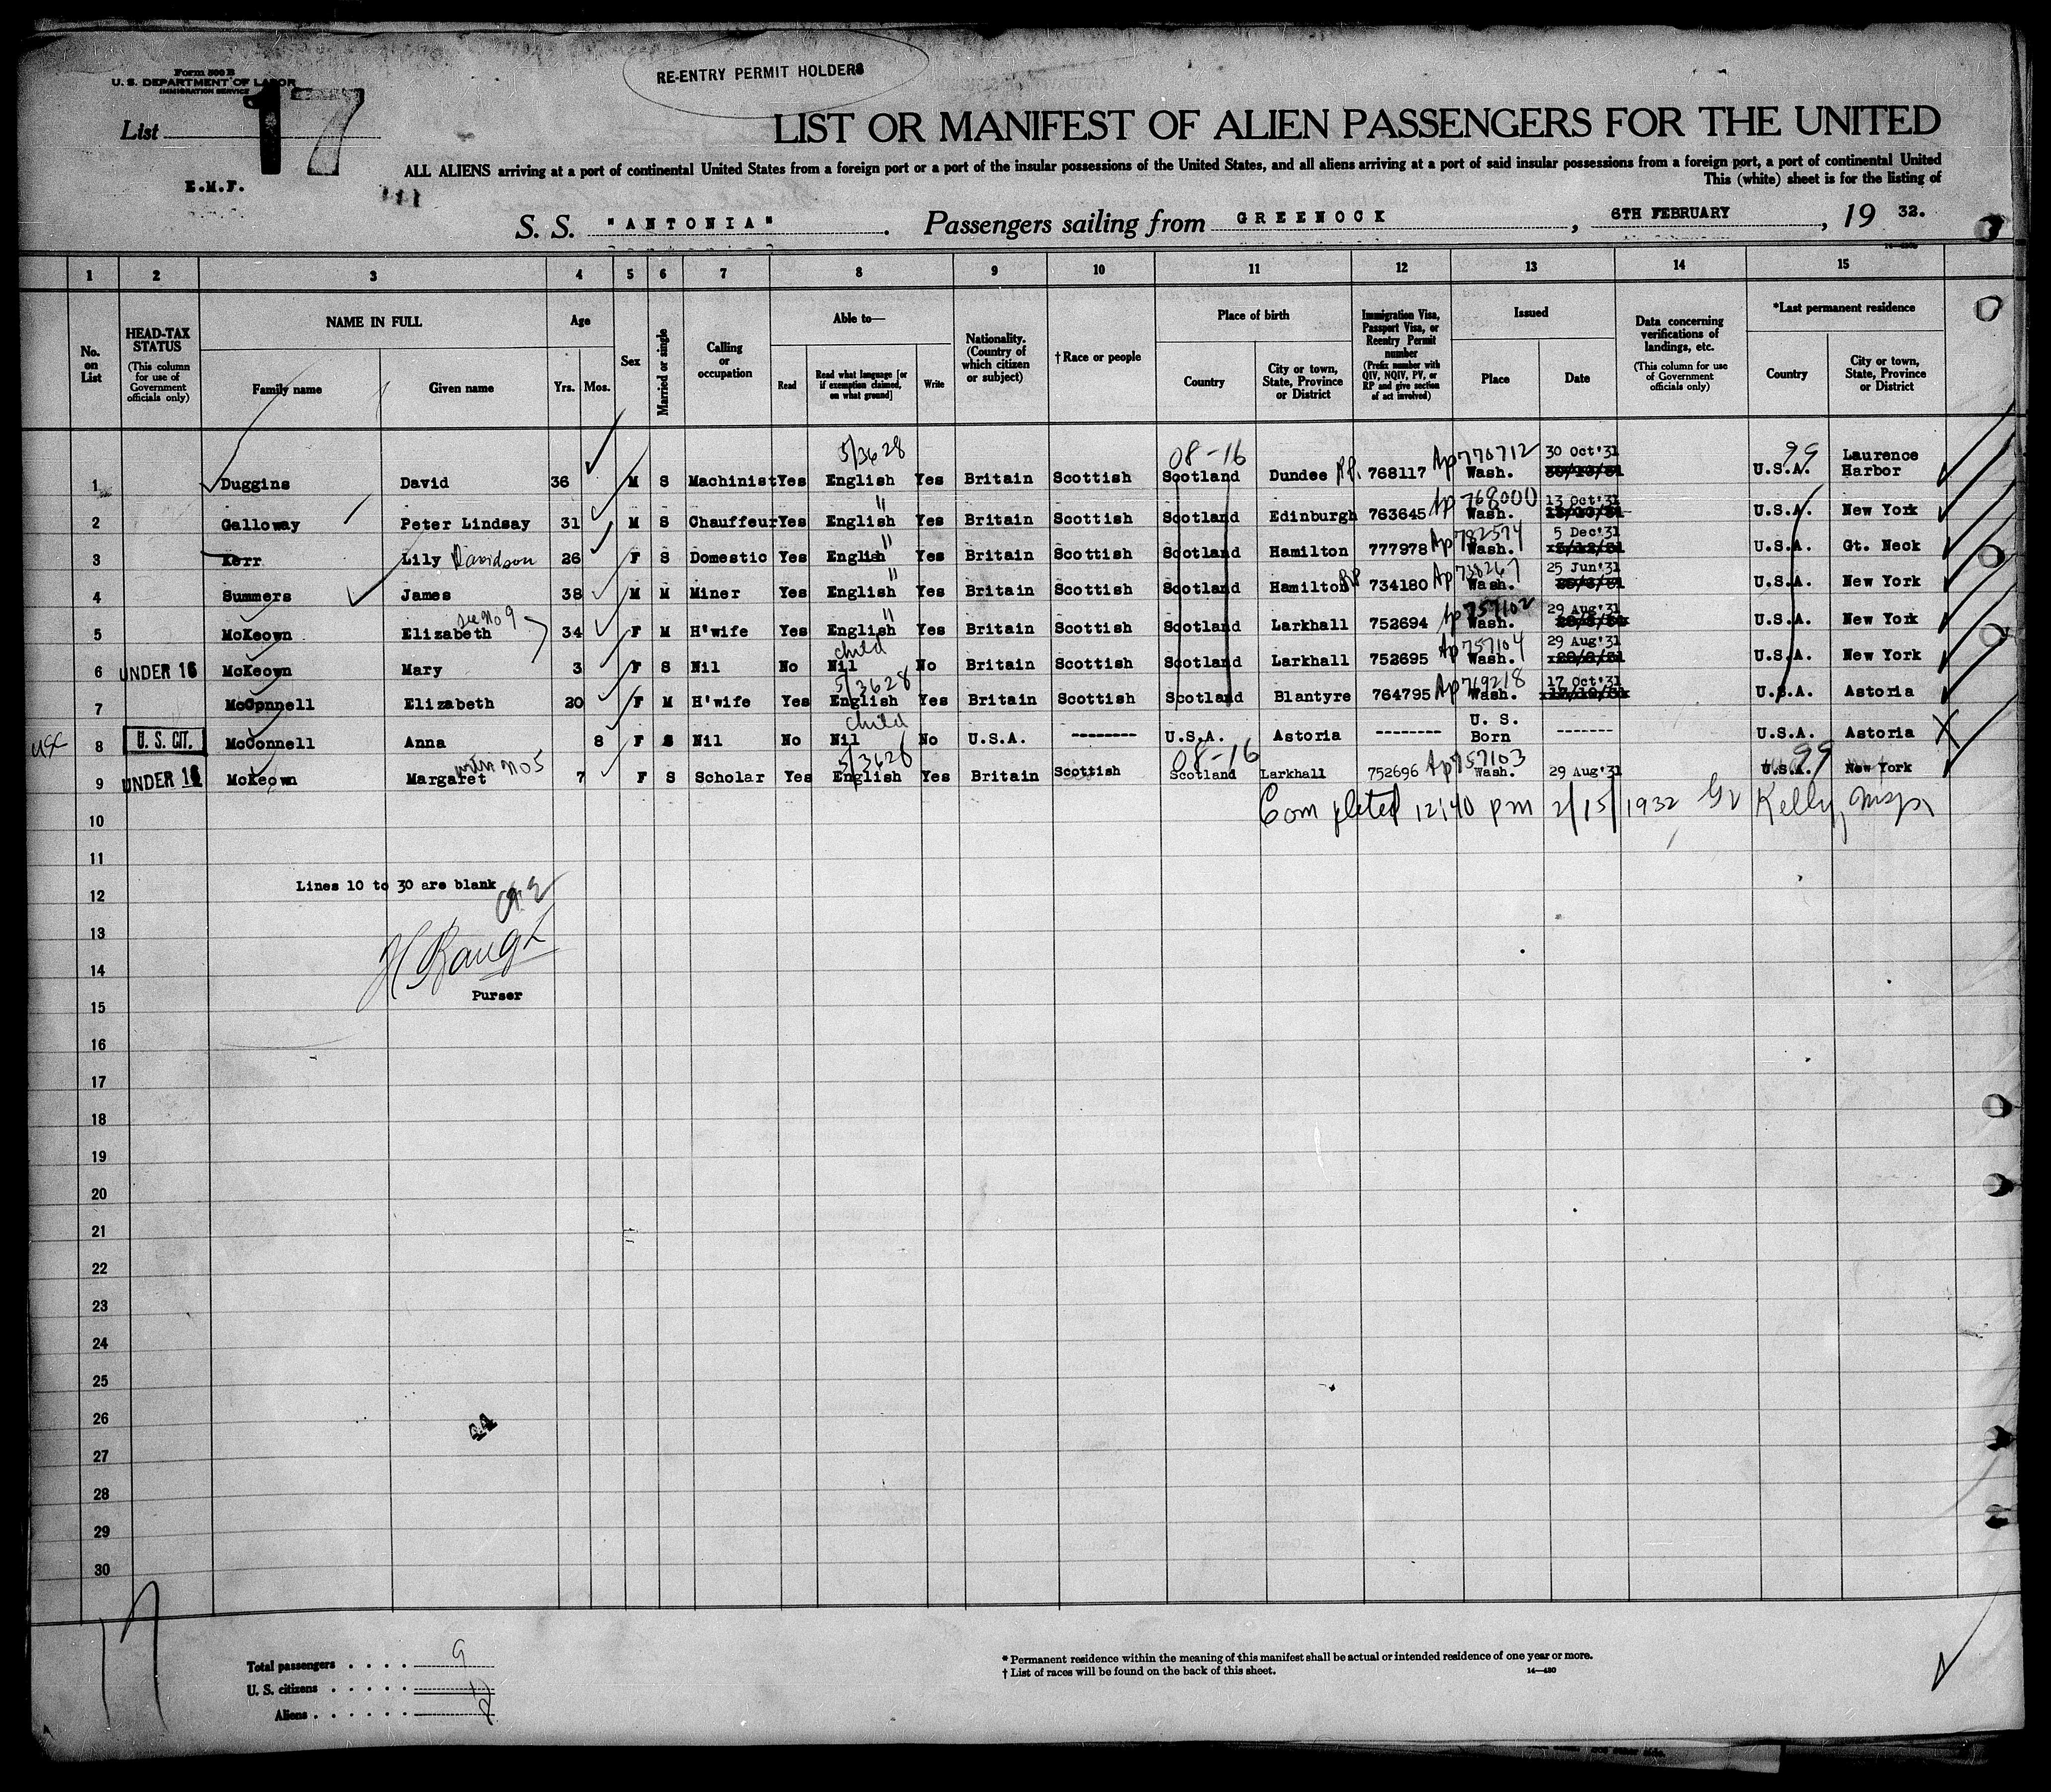 Form 500 B
U. S. DEPARTMENT OF LABOR
IMMIGRATION SERVICE
RE-ENTRY PERMIT HOLDERS
List 17
LIST OR MANIFEST OF ALIEN PASSENGERS FOR THE UNITED
ALL ALIENS arriving at a port of continental United States from a foreign port or a port of the insular possessions of the United States, and all aliens arriving at a port of said insular possessions from a foreign port, a port of continental United
This (white) sheet is for the listing of
E.M.F.
S. S. "ANTONIA". Passengers sailing from GREENOCK, 6TH FEBRUARY, 19 32.
1 2 3 4 5 6 7 8 9 10 11 12 13 14 15
No. on List
HEAD-TAX STATUS (This column for use of Government officials only)
NAME IN FULL
Family name Given name
Age
Yrs. Mos.
Sex
Married or single
Calling or occupation
Able to—
Read Read what language [or if exemption claimed, on what ground] Write
Nationality. (Country of which citizen or subject)
† Race or people
Place of birth
Country City or town, State, Province or District
Immigration Visa, Passport Visa, or Reentry Permit number (Prefix number with QIV, NQIV, PV, or RP and give section of act involved)
Issued
Place Date
Data concerning verifications of landings, etc. (This column for use of Government officials only)
*Last permanent residence
Country City or town, State, Province or District
5/3628 08-16 Ap770712 30 Oct'31 99 Laurence
1 Duggins David 36 M S Machinist Yes English Yes Britain Scottish Scotland Dundee RP. 768117 Wash. 30/10/31 U.S.A. Harbor
" Ap 768000 13 Oct'31
2 Galloway Peter Lindsay 31 M S Chauffeur Yes English Yes Britain Scottish Scotland Edinburgh 763645 Wash. 13/10/31 U.S.A. New York
" Ap782574 5 Dec'31
3 Kerr Lily Davidson 26 F S Domestic Yes English Yes Britain Scottish Scotland Hamilton 777978 Wash. U.S.A. Gt. Neck
" Ap738267 25 Jun'31
4 Summers James 38 M M Miner Yes English Yes Britain Scottish Scotland Hamilton RP 734180 Wash. U.S.A. New York
see No 9 " Ap 757102 29 Aug'31
5 McKeown Elizabeth 34 F M H'wife Yes English Yes Britain Scottish Scotland Larkhall 752694 Wash. U.S.A. New York
child Ap757104 29 Aug'31
6 UNDER 16 McKeown Mary 3 F S Nil No Nil No Britain Scottish Scotland Larkhall 752695 Wash. U.S.A. New York
5/3628 Ap769218 17 Oct'31
7 McConnell Elizabeth 20 F M H'wife Yes English Yes Britain Scottish Scotland Blantyre 764795 Wash. U.S.A. Astoria
child U. S.
USC 8 U. S. CIT. McConnell Anna 8 F S Nil No Nil No U.S.A. -------- U.S.A. Astoria -------- Born ------- U.S.A. Astoria X
with No 5 5/3628 08-16 Ap757103 99
9 UNDER 16 McKeown Margaret 7 F S Scholar Yes English Yes Britain Scottish Scotland Larkhall 752696 Wash. 29 Aug'31 U.S.A. New York
10 Completed 12:40 pm 2/15/1932 Kelly, Insp.
11
12 Lines 10 to 30 are blank
13
14
Purser
15
16
17
18
19
20
21
22
23
24
25
26
44
27
28
29
30
Total passengers . . . . 9
U. S. citizens . . . . . 1
Aliens . . . . . . 8
* Permanent residence within the meaning of this manifest shall be actual or intended residence of one year or more.
† List of races will be found on the back of this sheet.
14—430